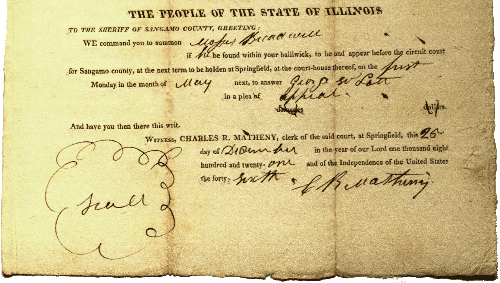 THE PEOPLE OF THE STATE OF ILLINOIS
TO THE SHERIFF OF SANGAMO COUNTY, GREETING:
WE command you to summon Moses Broadwell
if he be found within your bailiwick, to be and appear before the circuit court
for Sangamo county, at the next term to be holden at Springfield, at the court-house thereof, on the first
Monday in the month of May next, to answer George W
in a plea of appeal.
dollars.
And have you then there this writ.
WITNESS, CHARLES R. MATHENY, clerk of the said court, at Springfield, this 25
day of December in the year of our Lord one thousand eight
hundred and twenty-one and of the Independence of the United States
the forty-sixth
Seal
C R Matheny